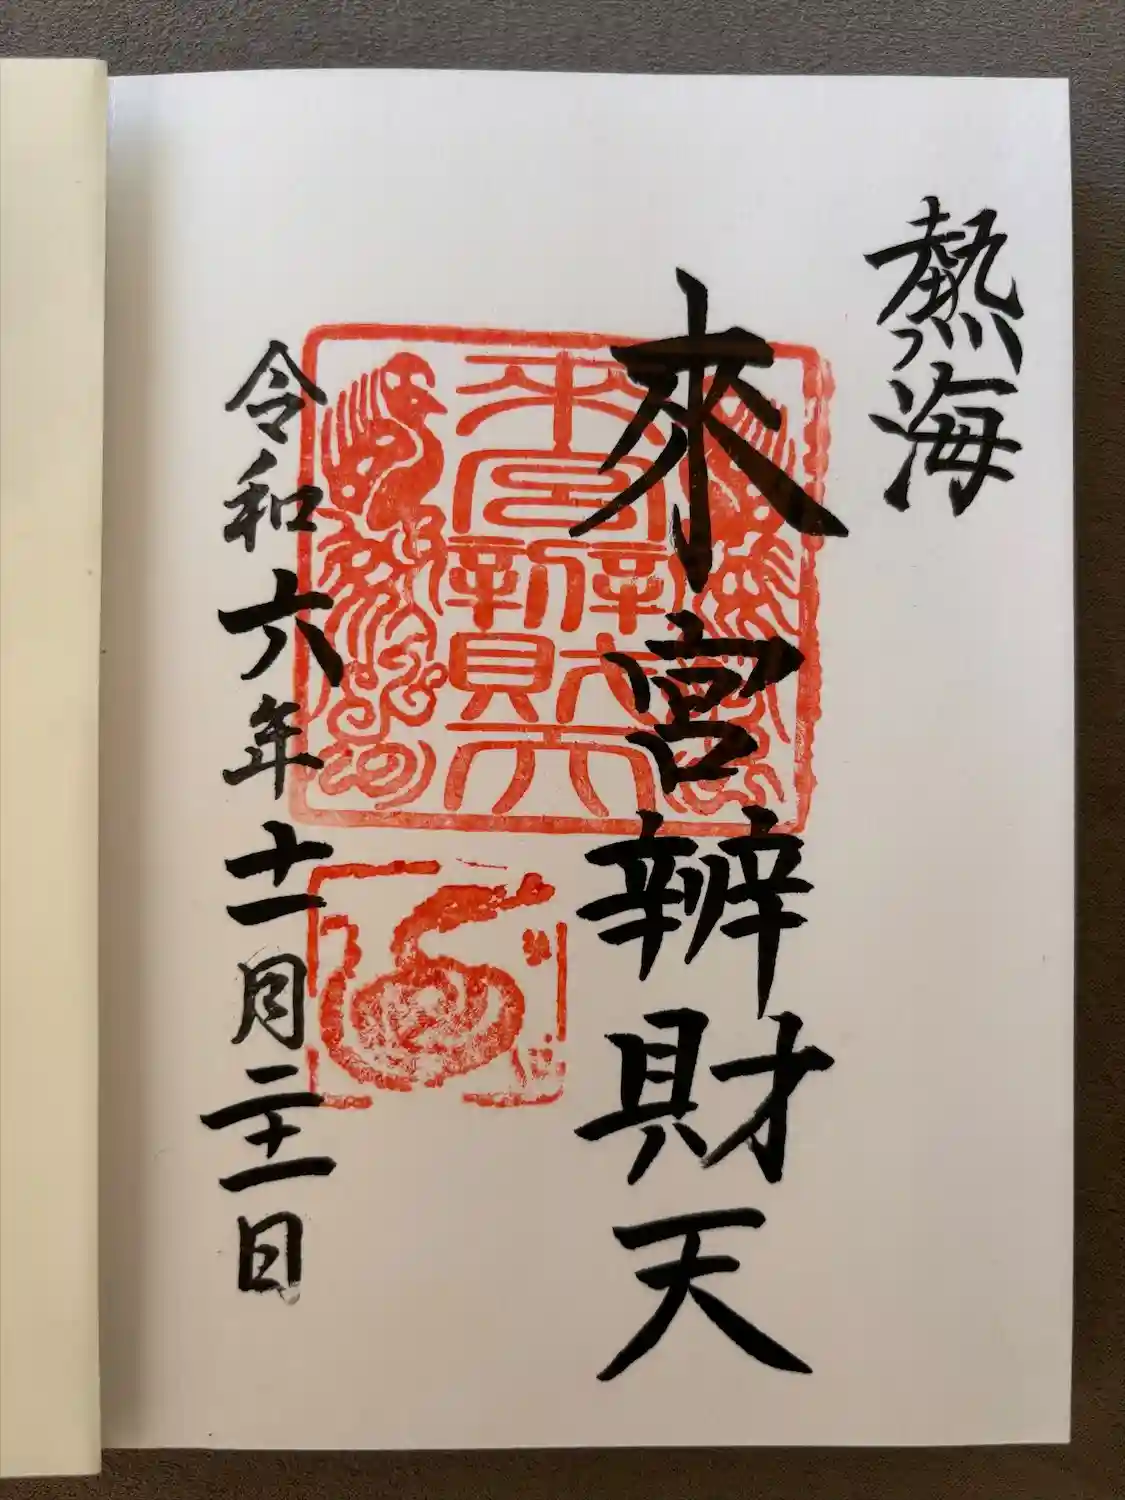 熱海
來宮辨財天
令和六年十一月二十一日
来宮辨財天